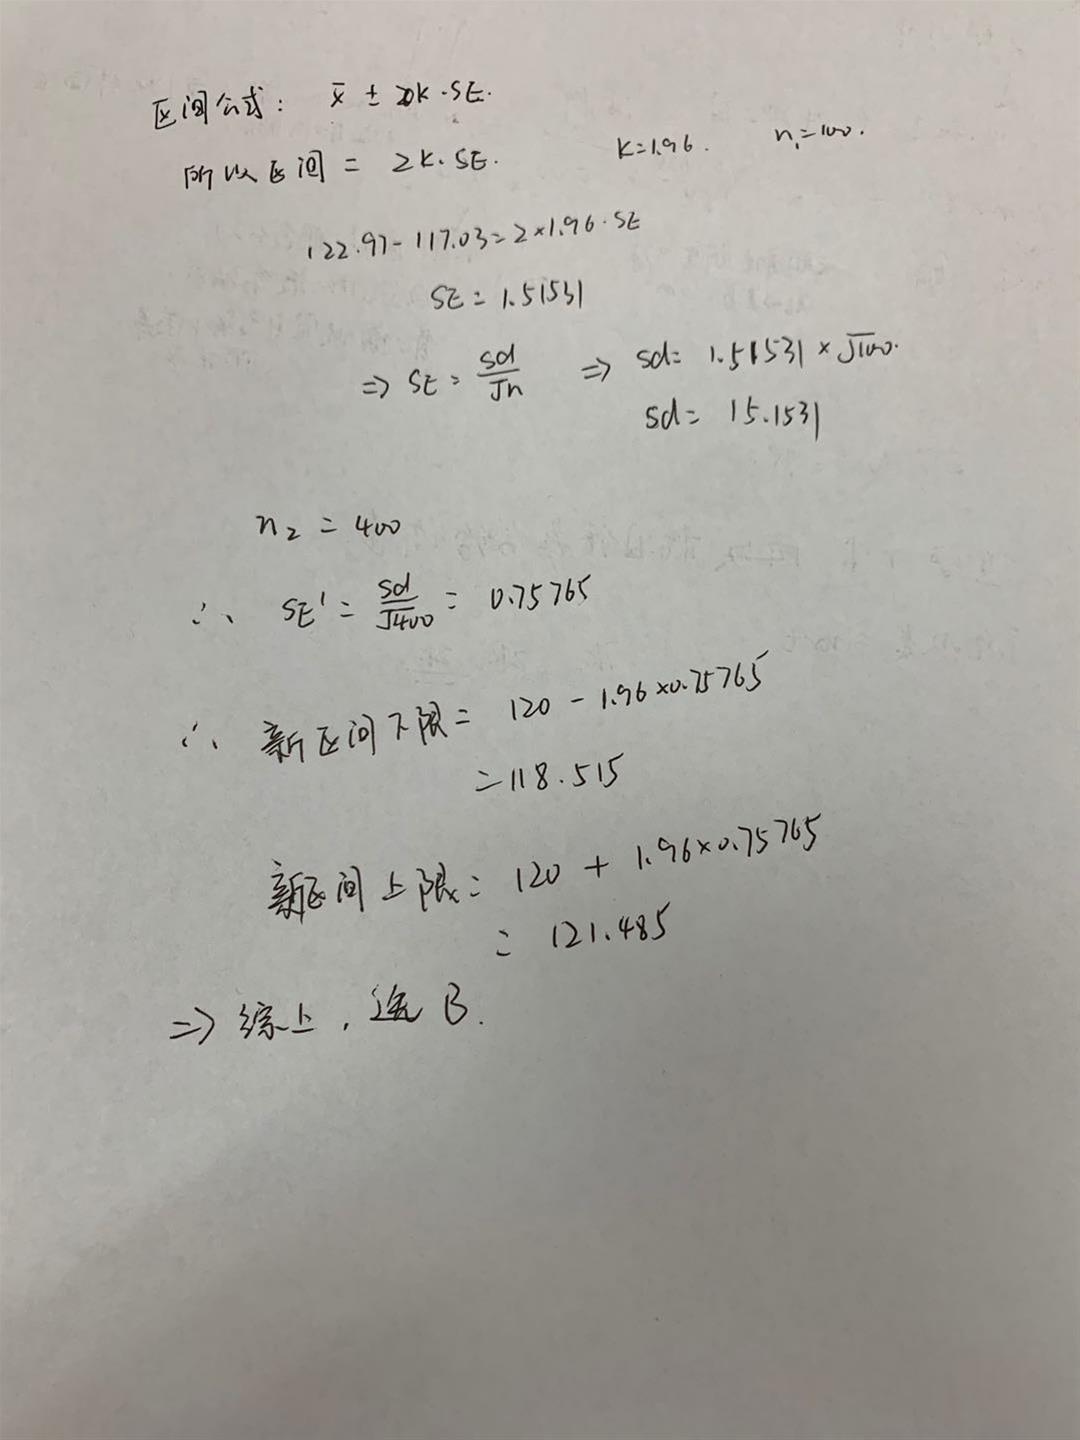 区间公式: x̄ ± K·SE.
所以区间 = 2K·SE. K=1.96. n₁=100.
122.97-117.03=2×1.96·SE
SE = 1.51531
=> SE = sd/√n => sd= 1.51531 × √100.
sd= 15.1531
n₂ = 400
∴ SE' = sd/√400 = 0.75765
∴ 新区间下限= 120 - 1.96×0.75765
=118.515
新区间上限= 120 + 1.96×0.75765
= 121.485
=> 综上, 选 B.